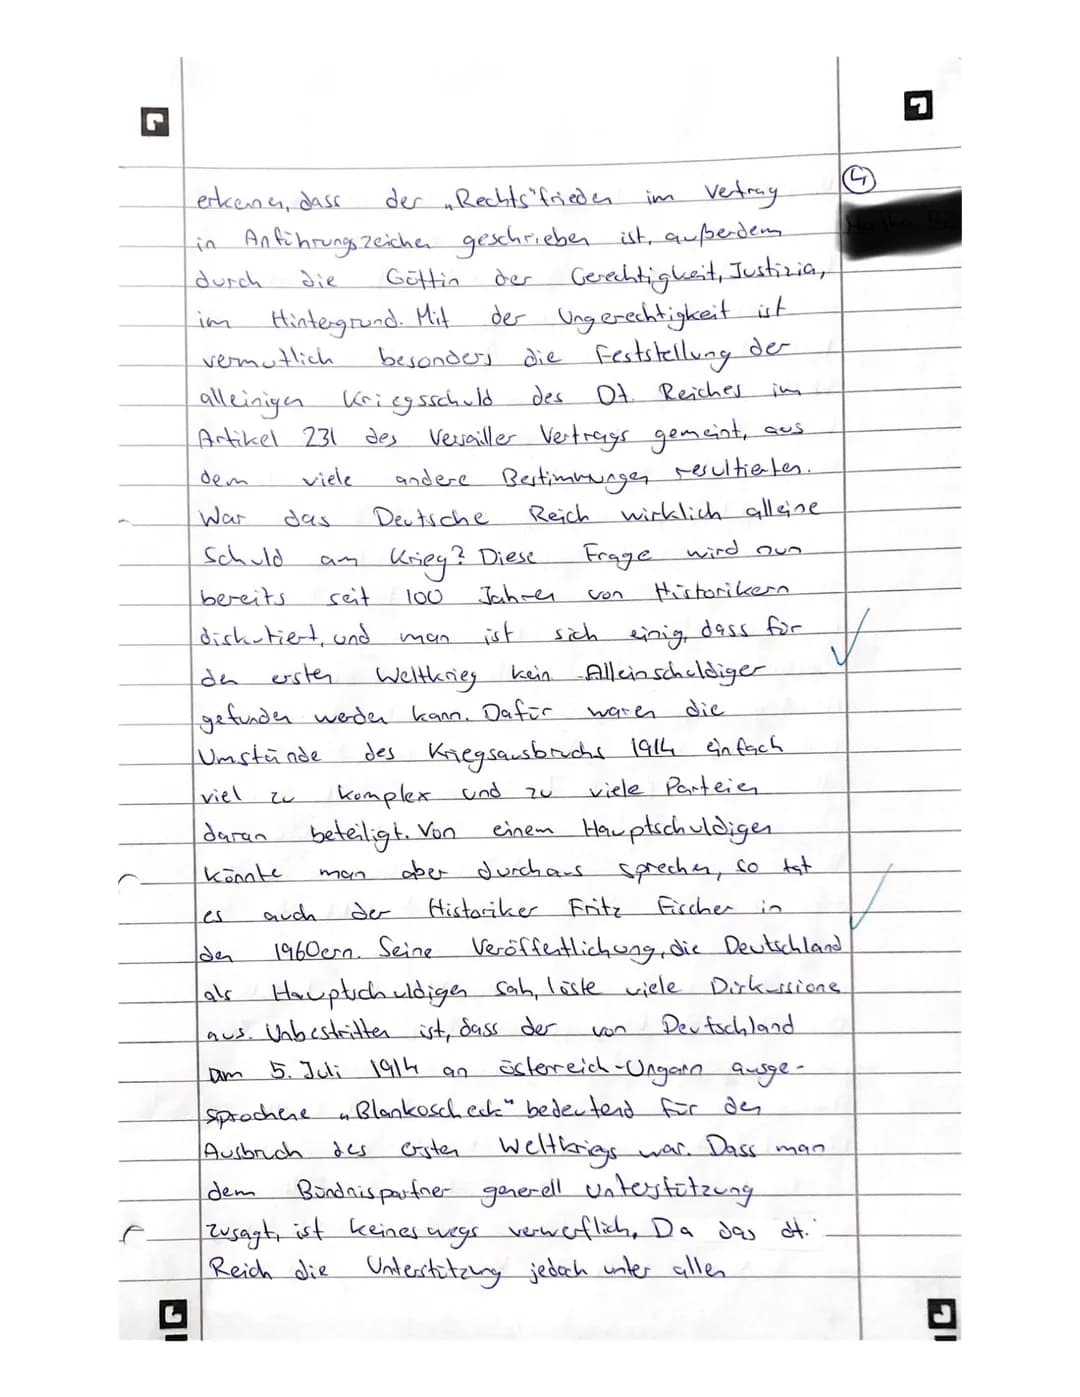 ④
erkennen, dass der „Rechts"frieden im Vertrag
in Anführungszeichen geschrieben ist, außerdem
durch die Göttin der Gerechtigkeit, Justizia,
im Hintergrund. Mit der Ungerechtigkeit ist
vermutlich besonders die Feststellung der
alleinigen Kriegsschuld des Dt. Reiches im
Artikel 231 des Versailler Vertrags gemeint, aus
dem viele andere Bestimmungen resultierten.
War das Deutsche Reich wirklich alleine
Schuld am Krieg? Diese Frage wird nun
bereits seit 100 Jahren von Historikern
diskutiert, und man ist sich einig, dass für
den ersten Weltkrieg kein Alleinschuldiger
gefunden werden kann. Dafür waren die
Umstände des Kriegsausbruchs 1914 einfach
viel zu komplex und zu viele Parteien
daran beteiligt. Von einem Hauptschuldigen
könnte man aber durchaus sprechen, so tat
es auch der Historiker Fritz Fischer in
den 1960ern. Seine Veröffentlichung, die Deutschland
als Hauptschuldigen sah, löste viele Diskussionen
aus. Unbestritten ist, dass der von Deutschland
am 5. Juli 1914 an Österreich-Ungarn ausge-
sprochene „Blankoscheck" bedeutend für den
Ausbruch des ersten Weltkriegs war. Dass man
dem Bündnispartner generell Unterstützung
zusagt, ist keineswegs verwerflich, Da das dt.
Reich die Unterstützung jedoch unter allen